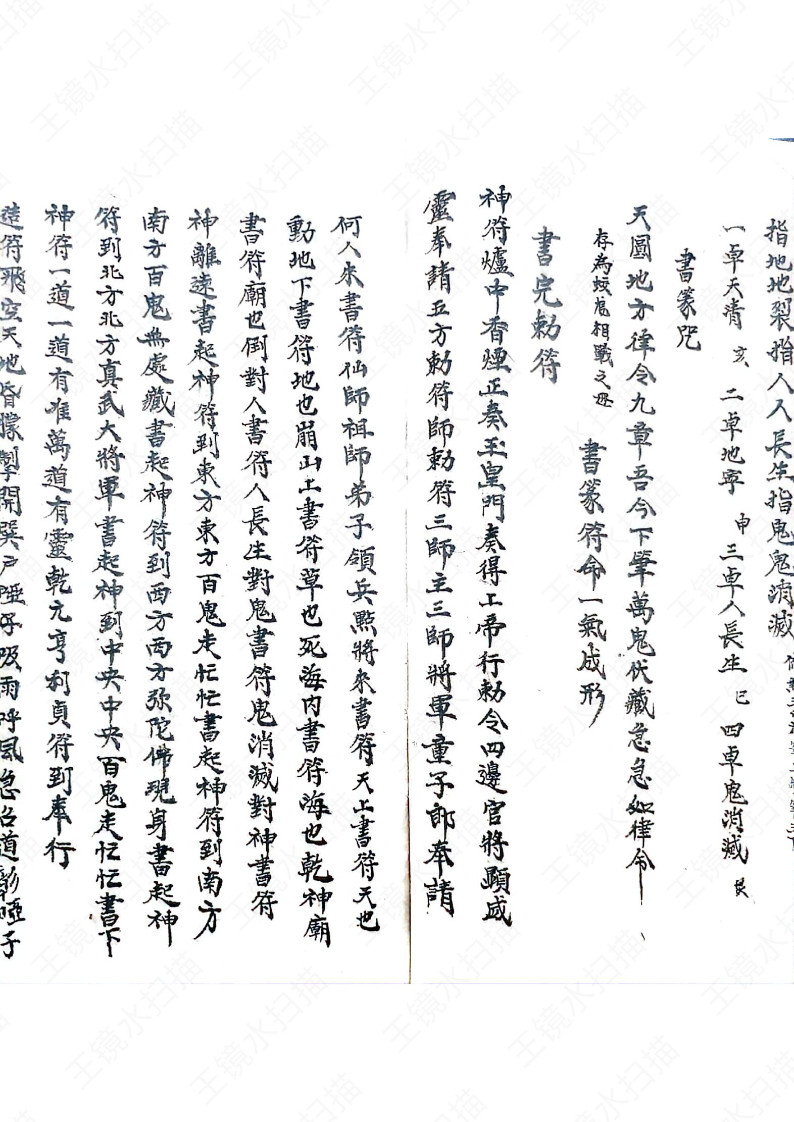 指地地裂指人人長生指鬼鬼消滅
一卓天清 亥 二卓地寧 申 三卓人長生 巳 四卓鬼消滅 艮
書篆咒
天圓地方律令九章吾今下筆萬鬼伏藏急急如律令
存為蛟龍相戰之毋 書篆符命一氣成形
書完勅符
神符爐中香煙正奏玉皇門奏得上帝行勅令四邊官將顯威
靈奉請五方勅符師勅符三師主三師將軍童子郎奉請
何人來書符仙師祖師弟子領兵點將來書符天上書符天也
動地下書符地也崩山上書符草也死海內書符海也乾神廟
書符廟也倒對人書符人長生對鬼書符鬼消滅對神書符
神離遠書起神符到東方東方百鬼走忙忙書起神符到南方
南方百鬼無處藏書起神符到西方西方弥陀佛現身書起神
符到北方北方真武大將軍書起神到中央中央百鬼走忙忙書下
神符一道一道有准萬道有靈乾元亨利貞符到奉行
造符飛空天地昏朦掣開巽戶唾子吸雨呼風急召道彰啞子
王镜水扫描